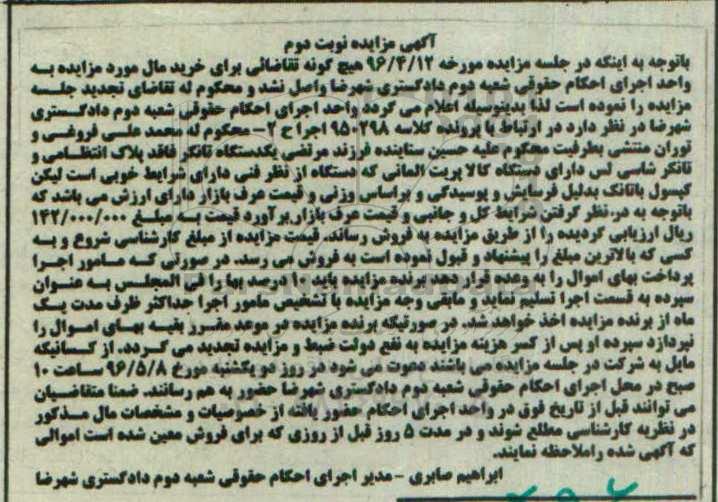 آگهی مزایده نوبت دوم
باتوجه به اینکه در جلسه مزایده مورخه ۹۶/۴/۱۲ هیچ گونه تقاضائی برای خرید مال مورد مزایده به
واحد اجرای احکام حقوقی شعبه دوم دادگستری شهرضا واصل نشد و محکوم له تقاضای تجدید جلسه
مزایده را نموده است لذا بدینوسیله اعلام می گردد واحد اجرای احکام حقوقی شعبه دوم دادگستری
شهرضا در نظر دارد در ارتباط با پرونده کلاسه ۹۵۰۲۹۸ اجرا ح ۲- محکوم له محمد علی فروغی و
توران منتشی بطرفیت محکوم علیه حسین ستاینده فرزند مرتضی یکدستگاه تانکر فاقد پلاک انتظامی و
تانکر شاسی لس دارای دستگاه کالا بریت المانی که دستگاه از نظر فنی دارای شرایط خوبی است لیکن
کپسول باتانک بدلیل فرسایش و پوسیدگی و براساس وزنی و قیمت عرف بازار دارای ارزش می باشد که
باتوجه به در نظر گرفتن شرایط کل و جانبی و قیمت عرف بازار برآورد قیمت به مبلغ ۱۴۲/۰۰۰/۰۰۰
ریال ارزیابی گردیده را از طریق مزایده به فروش رساند. قیمت مزایده از مبلغ کارشناسی شروع و به
کسی که بالاترین مبلغ را پیشنهاد و قبول نموده است به فروش می رسد. در صورتی که مامور اجرا
پرداخت بهای اموال را به وعده قرار دهد برنده مزایده باید ۱۰ درصد بها را فی المجلس به عنوان
سپرده به قسمت اجرا تسلیم نماید و مابقی وجه مزایده با تشخیص مامور اجرا حداکثر ظرف مدت یک
ماه از برنده مزایده اخذ خواهد شد. در صورتیکه برنده مزایده در موعد مقرر بقیه بهای اموال را
نپردازد سپرده او پس از کسر هزینه مزایده به نفع دولت ضبط و مزایده تجدید می گردد. از کسانیکه
مایل به شرکت در جلسه مزایده می باشند دعوت می شود در روز دو یکشنبه مورخ ۹۶/۵/۸ ساعت ۱۰
صبح در محل اجرای احکام حقوقی شعبه دوم دادگستری شهرضا حضور به هم رسانند. ضمنا متقاضیان
می توانند قبل از تاریخ فوق در واحد اجرای احکام حضور یافته از خصوصیات و مشخصات مال مذکور
در نظریه کارشناسی مطلع شوند و در مدت ۵ روز قبل از روزی که برای فروش معین شده است اموالی
که آگهی شده راملاحظه نمایند.
ابراهیم صابری -مدیر اجرای احکام حقوقی شعبه دوم دادگستری شهرضا